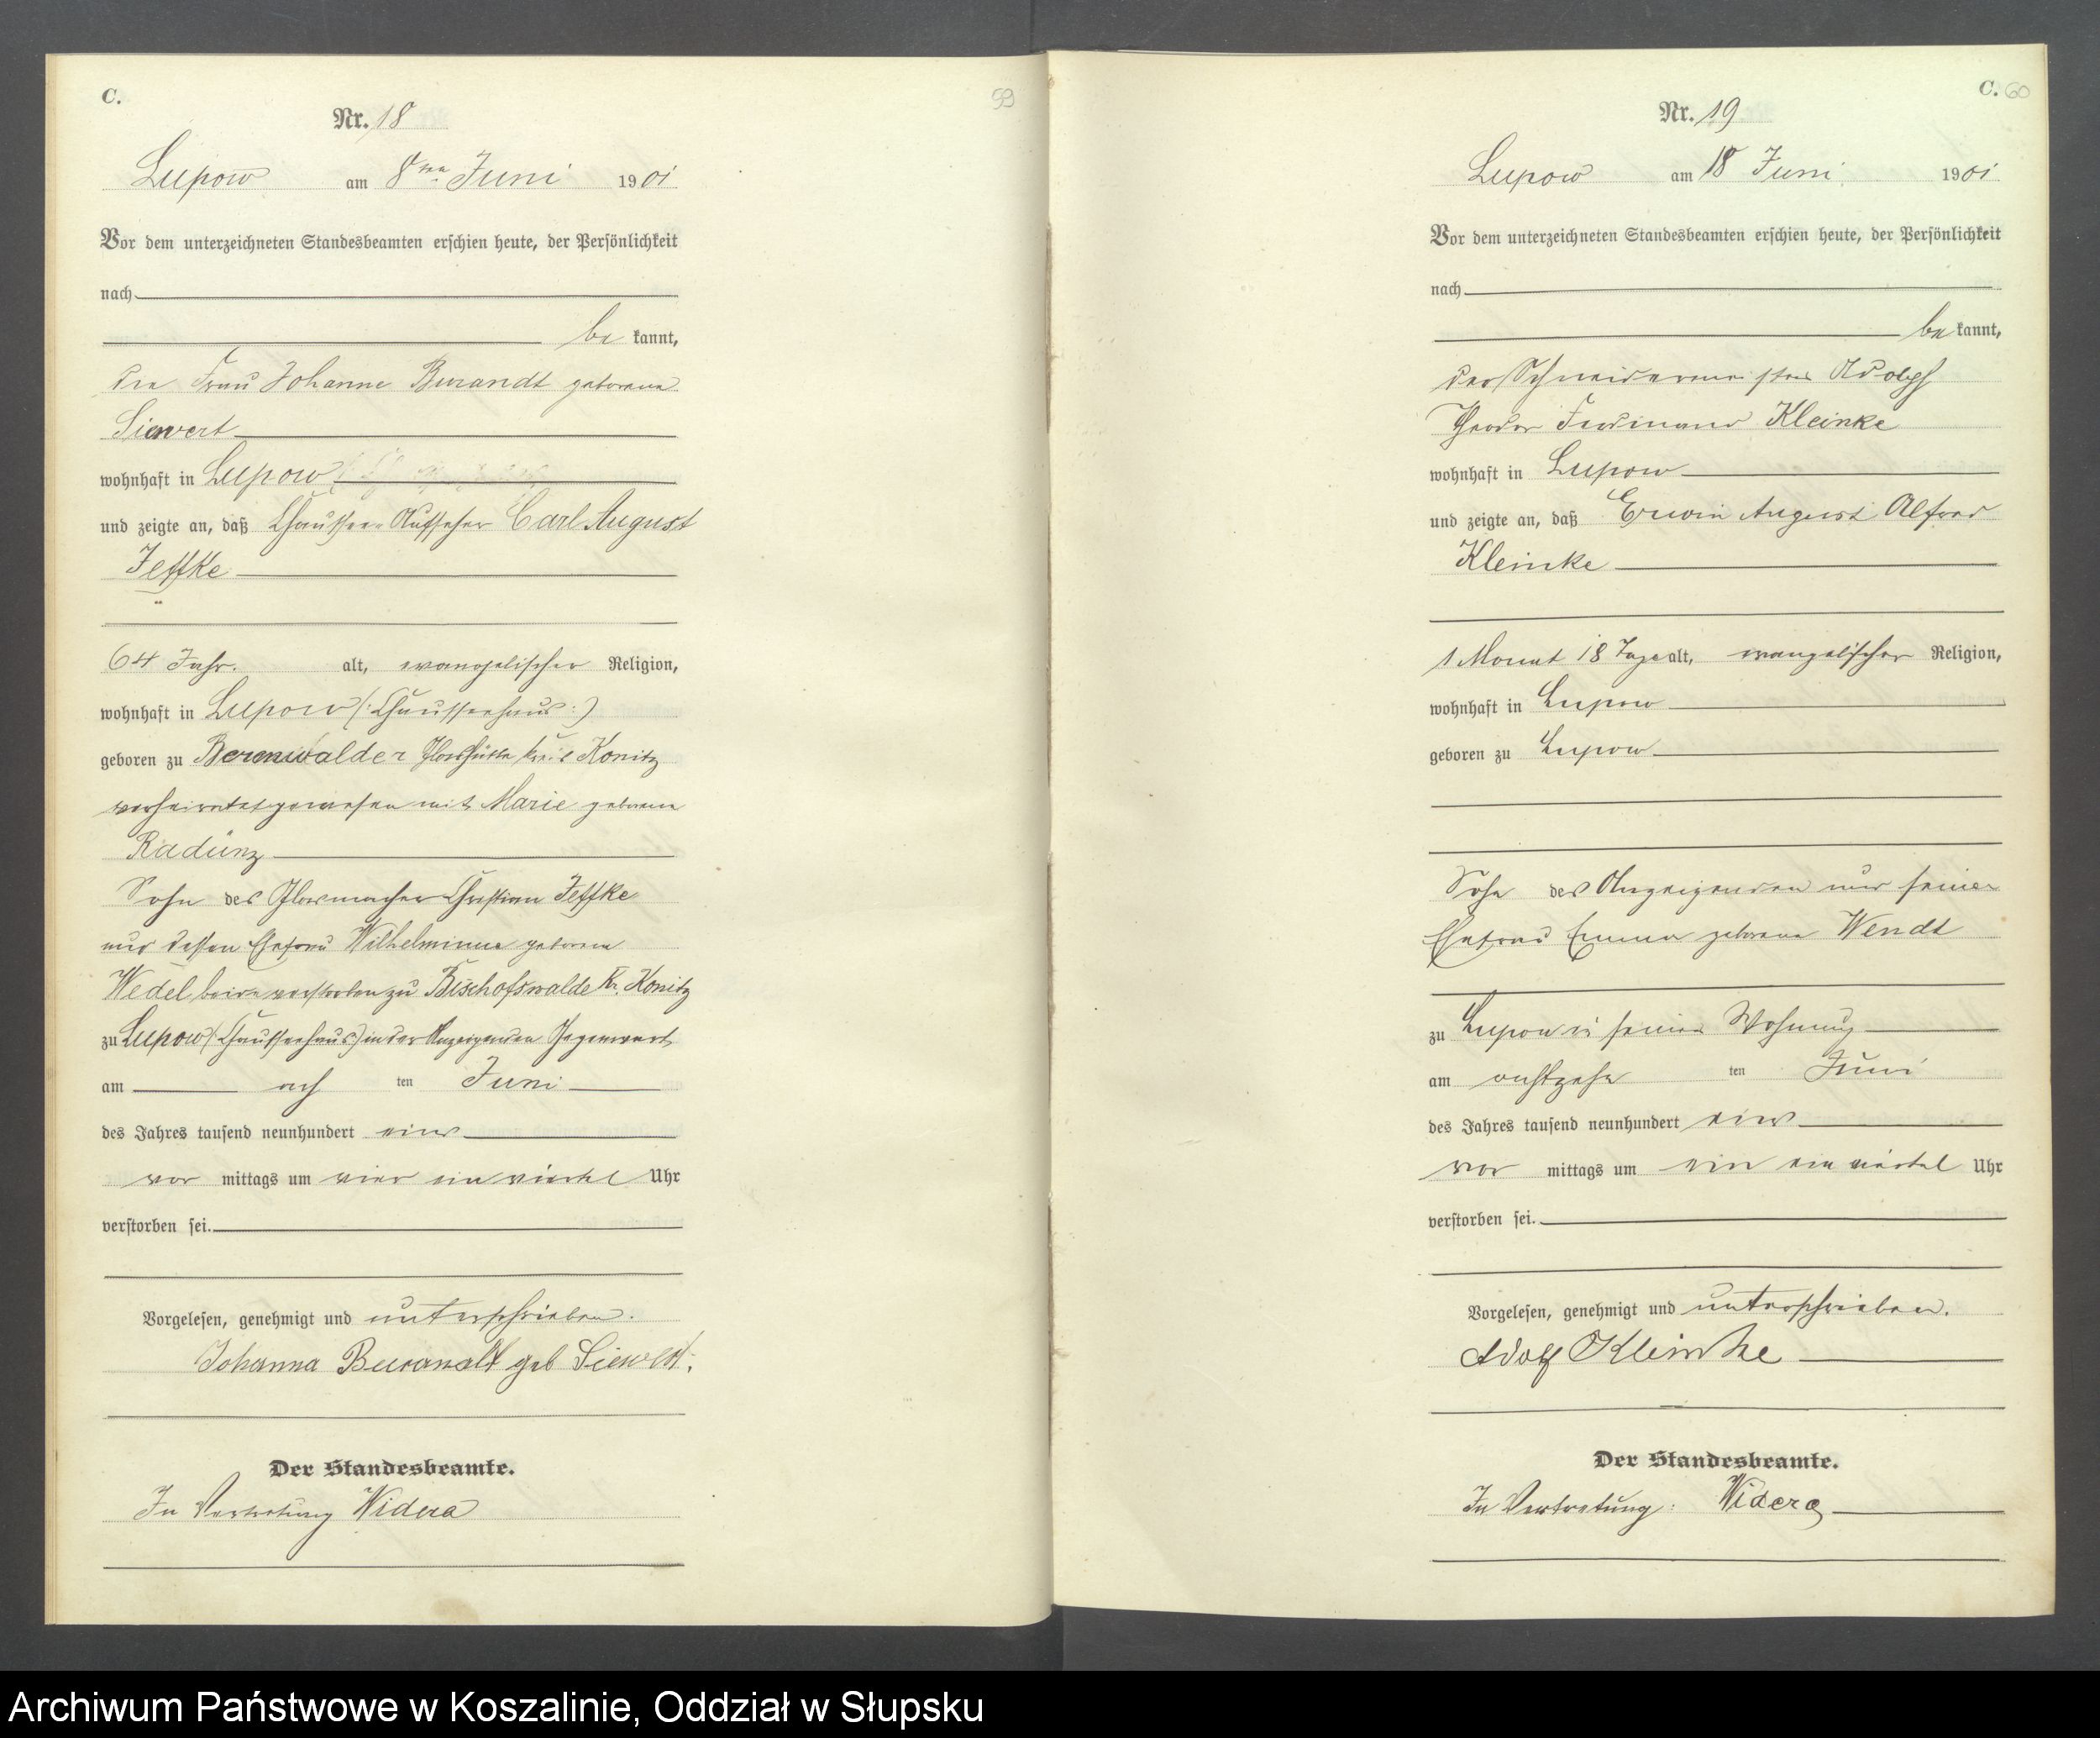 C.
59
Nr. 18
Lupow am 8ten Juni 1901
Vor dem unterzeichneten Standesbeamten erschien heute, der Persönlichkeit
nach
be kannt,
die Frau Johanne Burandt geborene
Siewert
wohnhaft in Lupow
und zeigte an, daß Chaussee-Aufseher Carl August
Jeffke
64 Jahr. alt, evangelischer Religion,
wohnhaft in Lupow (:Chausseehaus:)
geboren zu Berenwalder Glashütte Kreis Konitz
verheiratet gewesen mit Marie geborene
Radünz
Sohn des Glasmacher Christian Jeffke
und dessen Ehefrau Wilhelmine geborene
Wedel beide verstorben zu Bischofswalde Kr. Konitz
zu Lupow (:Chausseehaus) in der Anzeigenden Gegenwart
am ach ten Juni
des Jahres tausend neunhundert eins
vor mittags um vier ein viertel Uhr
verstorben sei.
Vorgelesen, genehmigt und unterschrieben.
Johanna Burandt geb Siewert.
Der Standesbeamte.
In Vertretung Widera
C. 60
Nr. 19
Lupow am 18 Juni 1901
Vor dem unterzeichneten Standesbeamten erschien heute, der Persönlichkeit
nach
be kannt,
der Schneidermeister Adolph
Theodor Ferdinand Kleinke
wohnhaft in Lupow
und zeigte an, daß Erwin August Alfred
Kleinke
1 Monat 18 Tage alt, evangelischer Religion,
wohnhaft in Lupow
geboren zu Lupow
Sohn des Anzeigenden und seiner
Ehefrau Emma geborene Wendt
zu Lupow in seiner Wohnung
am achtzehn ten Juni
des Jahres tausend neunhundert eins
vor mittags um ein ein viertel Uhr
verstorben sei.
Vorgelesen, genehmigt und unterschrieben.
Adolf Kleinke
Der Standesbeamte.
In Vertretung: Widera
Archiwum Państwowe w Koszalinie, Oddział w Słupsku